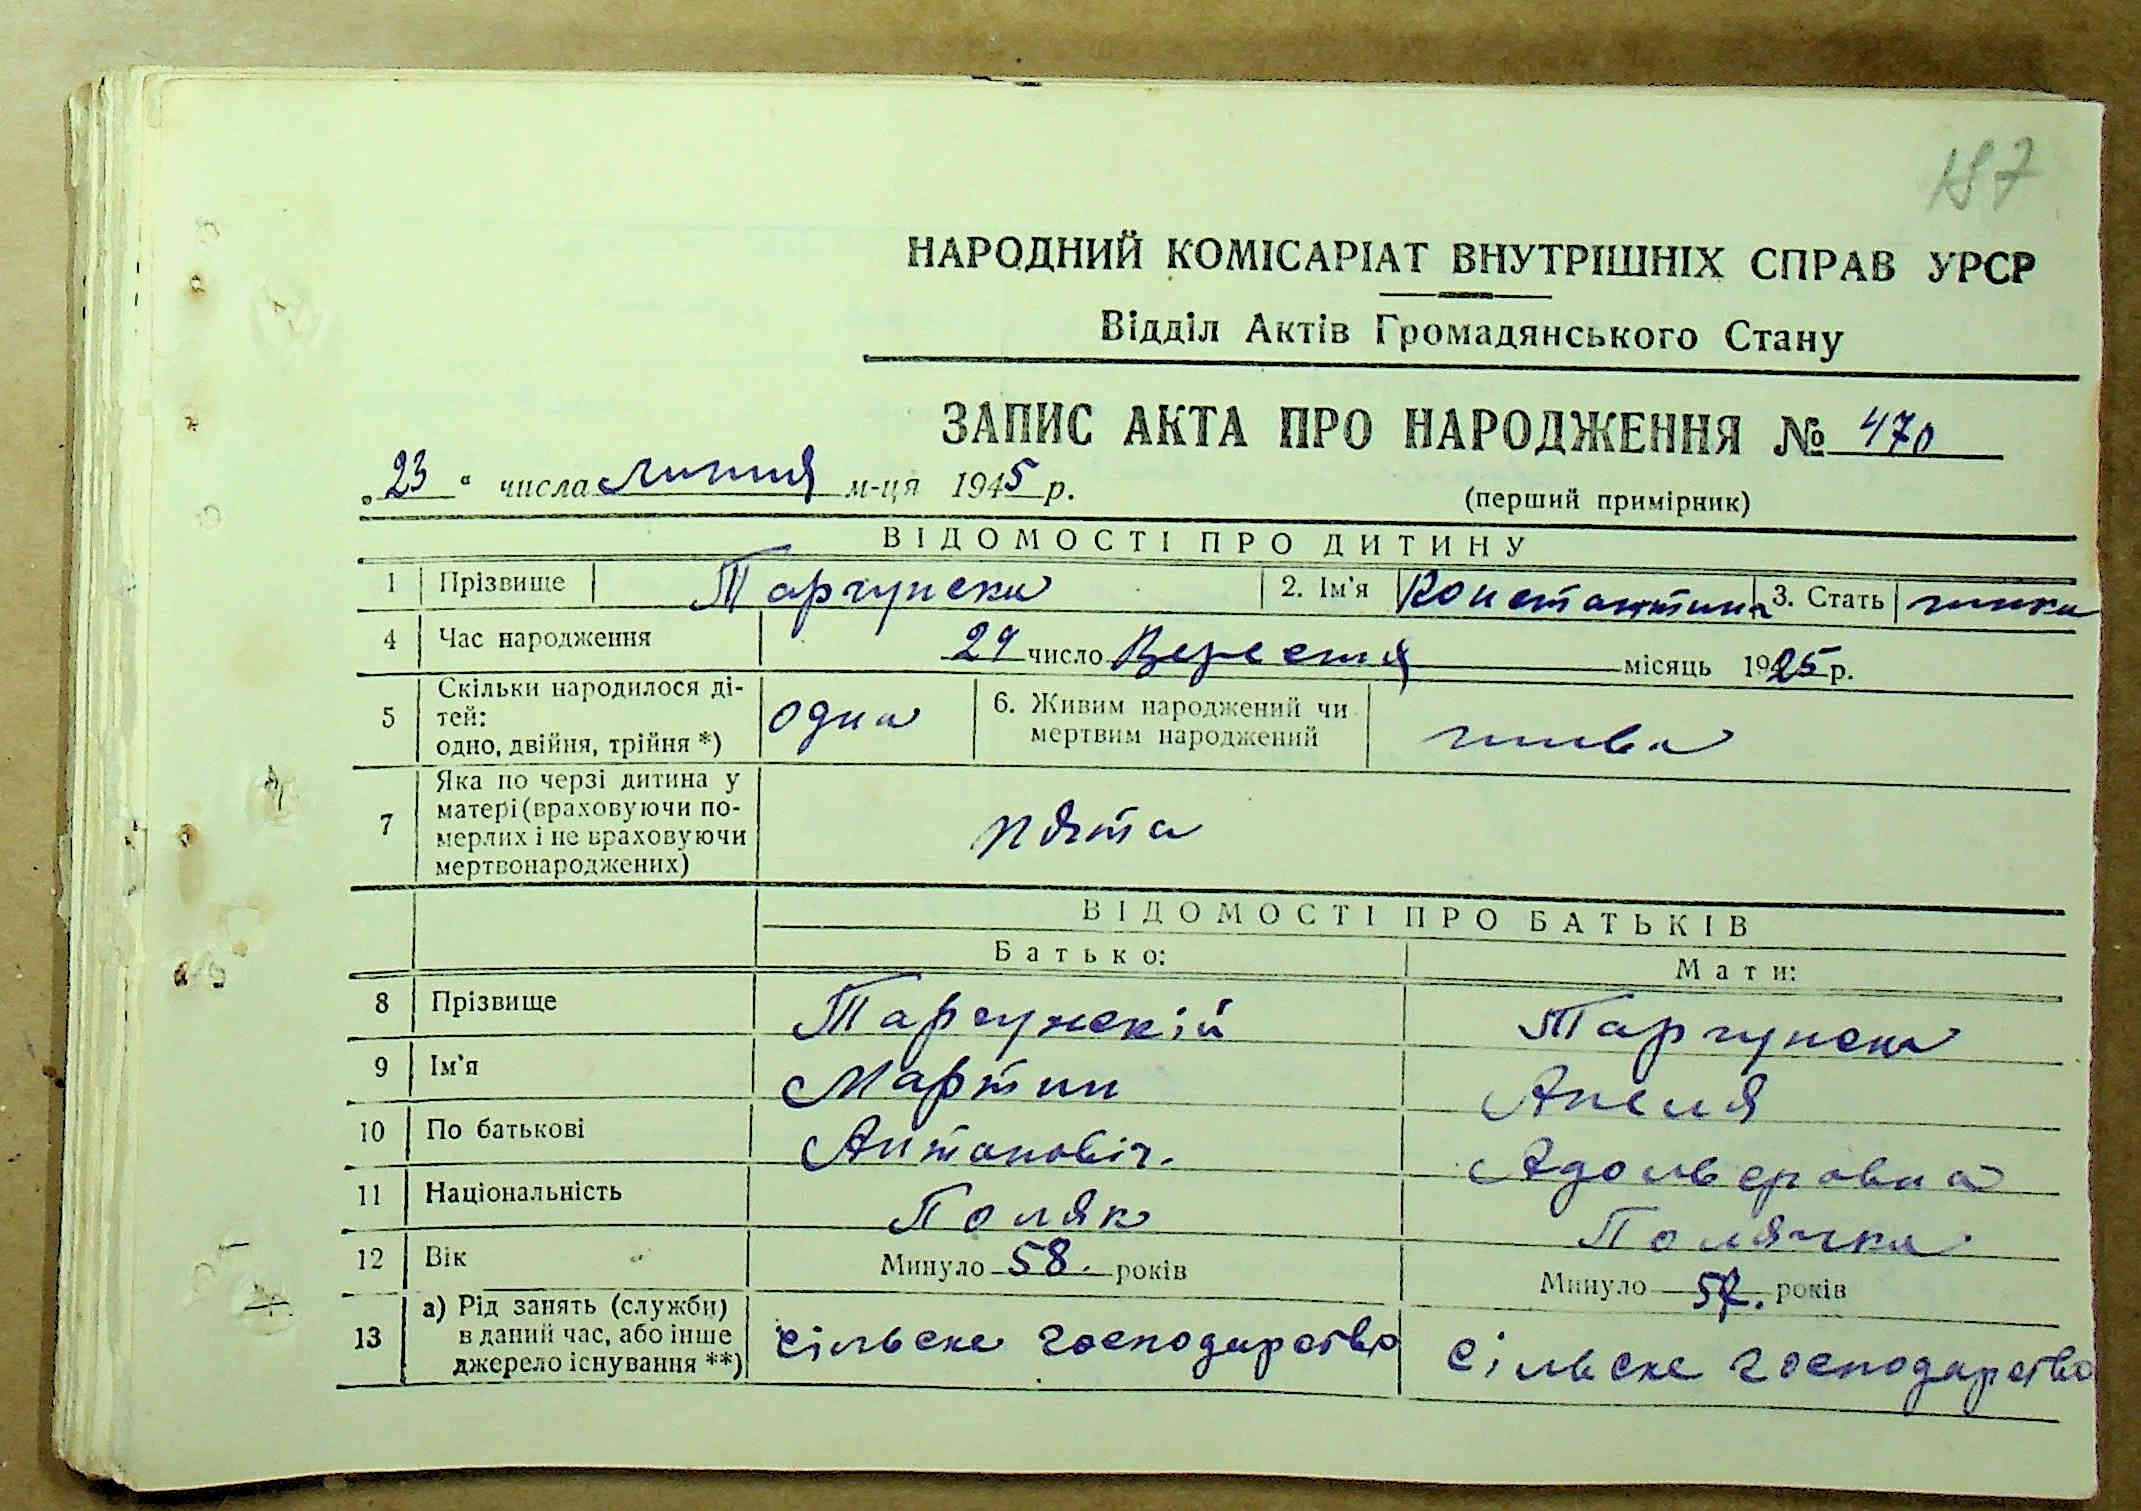 187
НАРОДНИЙ КОМІСАРІАТ ВНУТРІШНІХ СПРАВ УРСР
Відділ Актів Громадянського Стану
ЗАПИС АКТА ПРО НАРОДЖЕННЯ № 470
„23“ числа липня м-ця 1945 р.
(перший примірник)
ВІДОМОСТІ ПРО ДИТИНУ
1 Прізвище Таргунска 2. Ім'я Константина 3. Стать жінка
4 Час народження 29 число Вересня місяць 1925 р.
5 Скільки народилося ді-
тей:
одно, двійня, трійня *) одна 6. Живим народжений чи
мертвим народжений жива
7 Яка по черзі дитина у
матері (враховуючи по-
мерлих і не враховуючи
мертвонароджених) пята
ВІДОМОСТІ ПРО БАТЬКІВ
Батько: Мати:
8 Прізвище Таргунскій Таргунска
9 Ім'я Мартин Анеля
10 По батькові Антановіч. Адольфовна
11 Національність Поляк Полячка
12 Вік Минуло 58. років Минуло років
13 а) Рід занять (служби)
в даний час, або інше
джерело існування **) сільске господарство сільске господарство